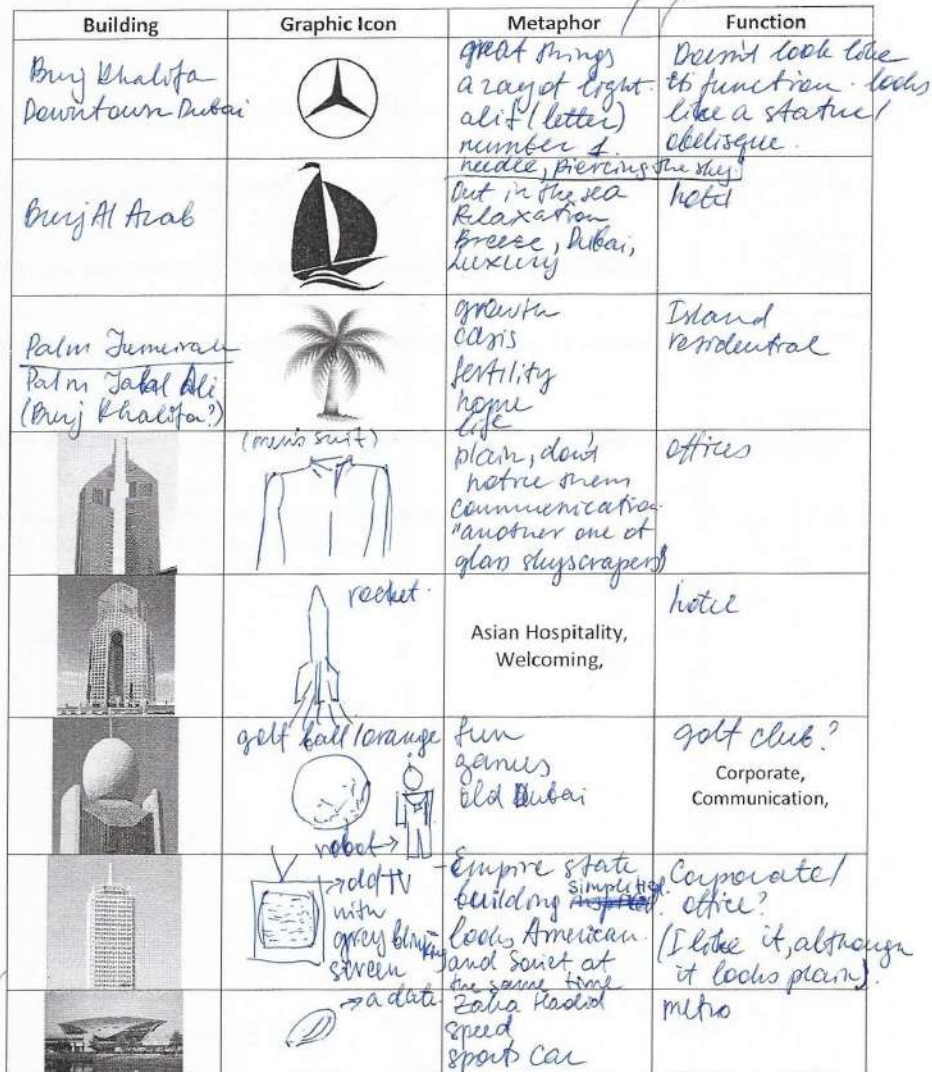 Building
Graphic Icon
Metaphor
Function
Burj Khalifa
Downtown Dubai
great things
a ray of light.
alif (letter)
number 1.
needle, piercing the sky.
Doesn't look like
its function. looks
like a statue/
obelisque.
Burj Al Arab
Out in the sea
Relaxation
Breeze, Dubai,
Luxury
hotel
Palm Jumeirah
Palm Jabal Ali
(Burj Khalifa?)
growth
oasis
fertility
home
life
Island
residential
(men's suit)
plain, don't
notice them
communication.
"another one of
glass skyscrapers"
offices
rocket.
Asian Hospitality,
Welcoming,
hotel
golf ball/orange
robot →
fun
games
old Dubai
golf club?
Corporate,
Communication,
→ old TV
with
grey blinking
screen
- Empire state
building simplified.
looks American
and Soviet at
the same time
Corporate/
office?
(I like it, although
it looks plain).
→ a date
Zaha Hadid
speed
sports car
metro